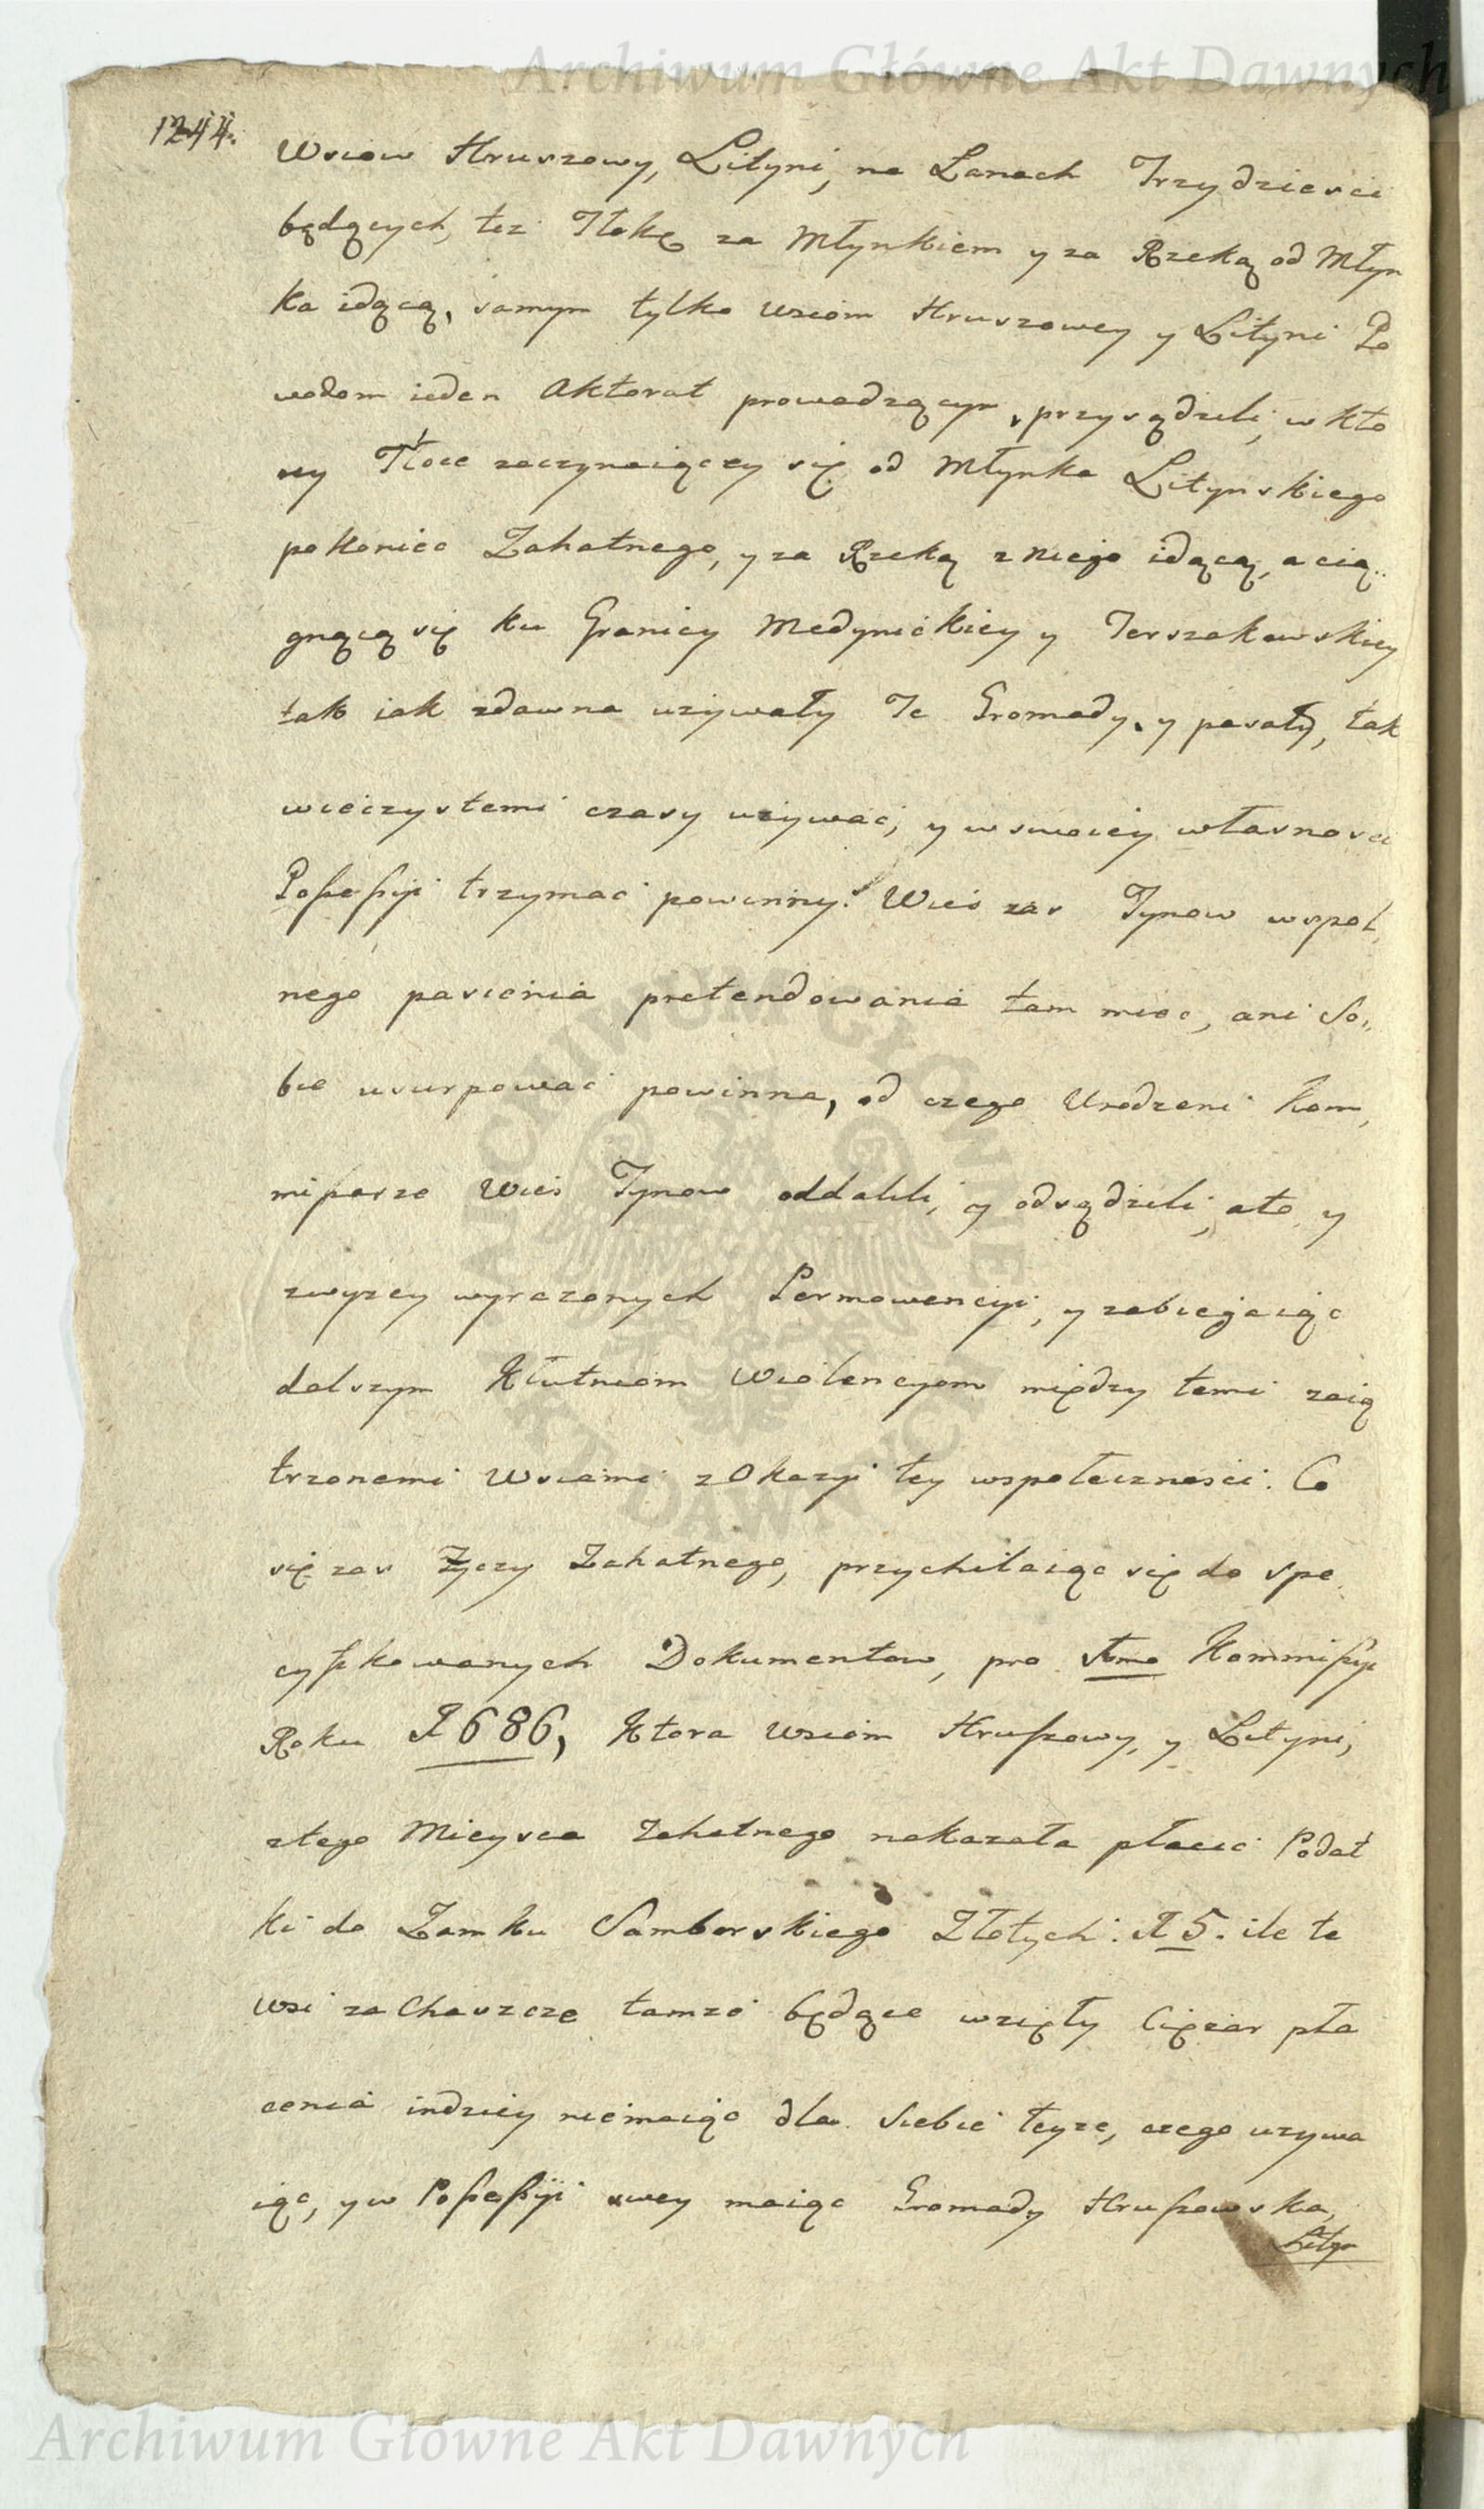 Archiwum Główne Akt Dawnych
1244.
Wsiow Hruszowy, Lityni, na Łanach Trzydziesci
będących, tez Tłokę za Młynkiem y za Rzeką od Młyn
ka idącą, samym tylko wsiom Hruszowey y Lityni Po
wodom ieden Aktorat prowadzącym, przysądzili, w kto
rey Tłoce zaczynaiącey się od Młynka Litynskiego
pokoniec Zahatnego, y za Rzeką z niego idącą, a cią..
gnącą się ku Granicy Medynickiey y Terszakowskiey
tak iak zdawna uzywały Te Gromady, y pasały, tak
wieczystemi czasy uzywać, y w swoiey własnosci
Possessyi trzymać powinny. Wieś zas Tynow wspol,
nego pasienia pretendowania tam miec, ani So,,
bie usurpować powinna, od czego Urodzeni Kom,
missarze Wieś Tynow oddalili, y odsądzili, ato y
zwyzey wyrazonych Permowencyi, y zabiegaiąc
dalszym Kłutniom Wiolencyom między temi zaią
trzonemi Wsiami z Okazyi tey wspołecznosci. Co
się zas Tyczy Zahatnego, przychilaiąc się do spe
cyfikowanych Dokumentow, pro 1mo Kommissyi
Roku 1686, Ktora Wsiom Hruszowy, y Lityni,
ztego Mieysca Zahatnego nakazała płacić Podat
ki do Zamku Samborskiego Złotych: 15. ile te
wsi za Chaszcze tamże będące wzięły Cięzar pła
cenia indziey niemaiąc dla siebie teyze, czego uzywa
iąc, y w Possessyi swey maiąc Gromady Hruszowska,
Lityn
ARCHIWUM GŁÓWNE AKT DAWNYCH
Archiwum Główne Akt Dawnych